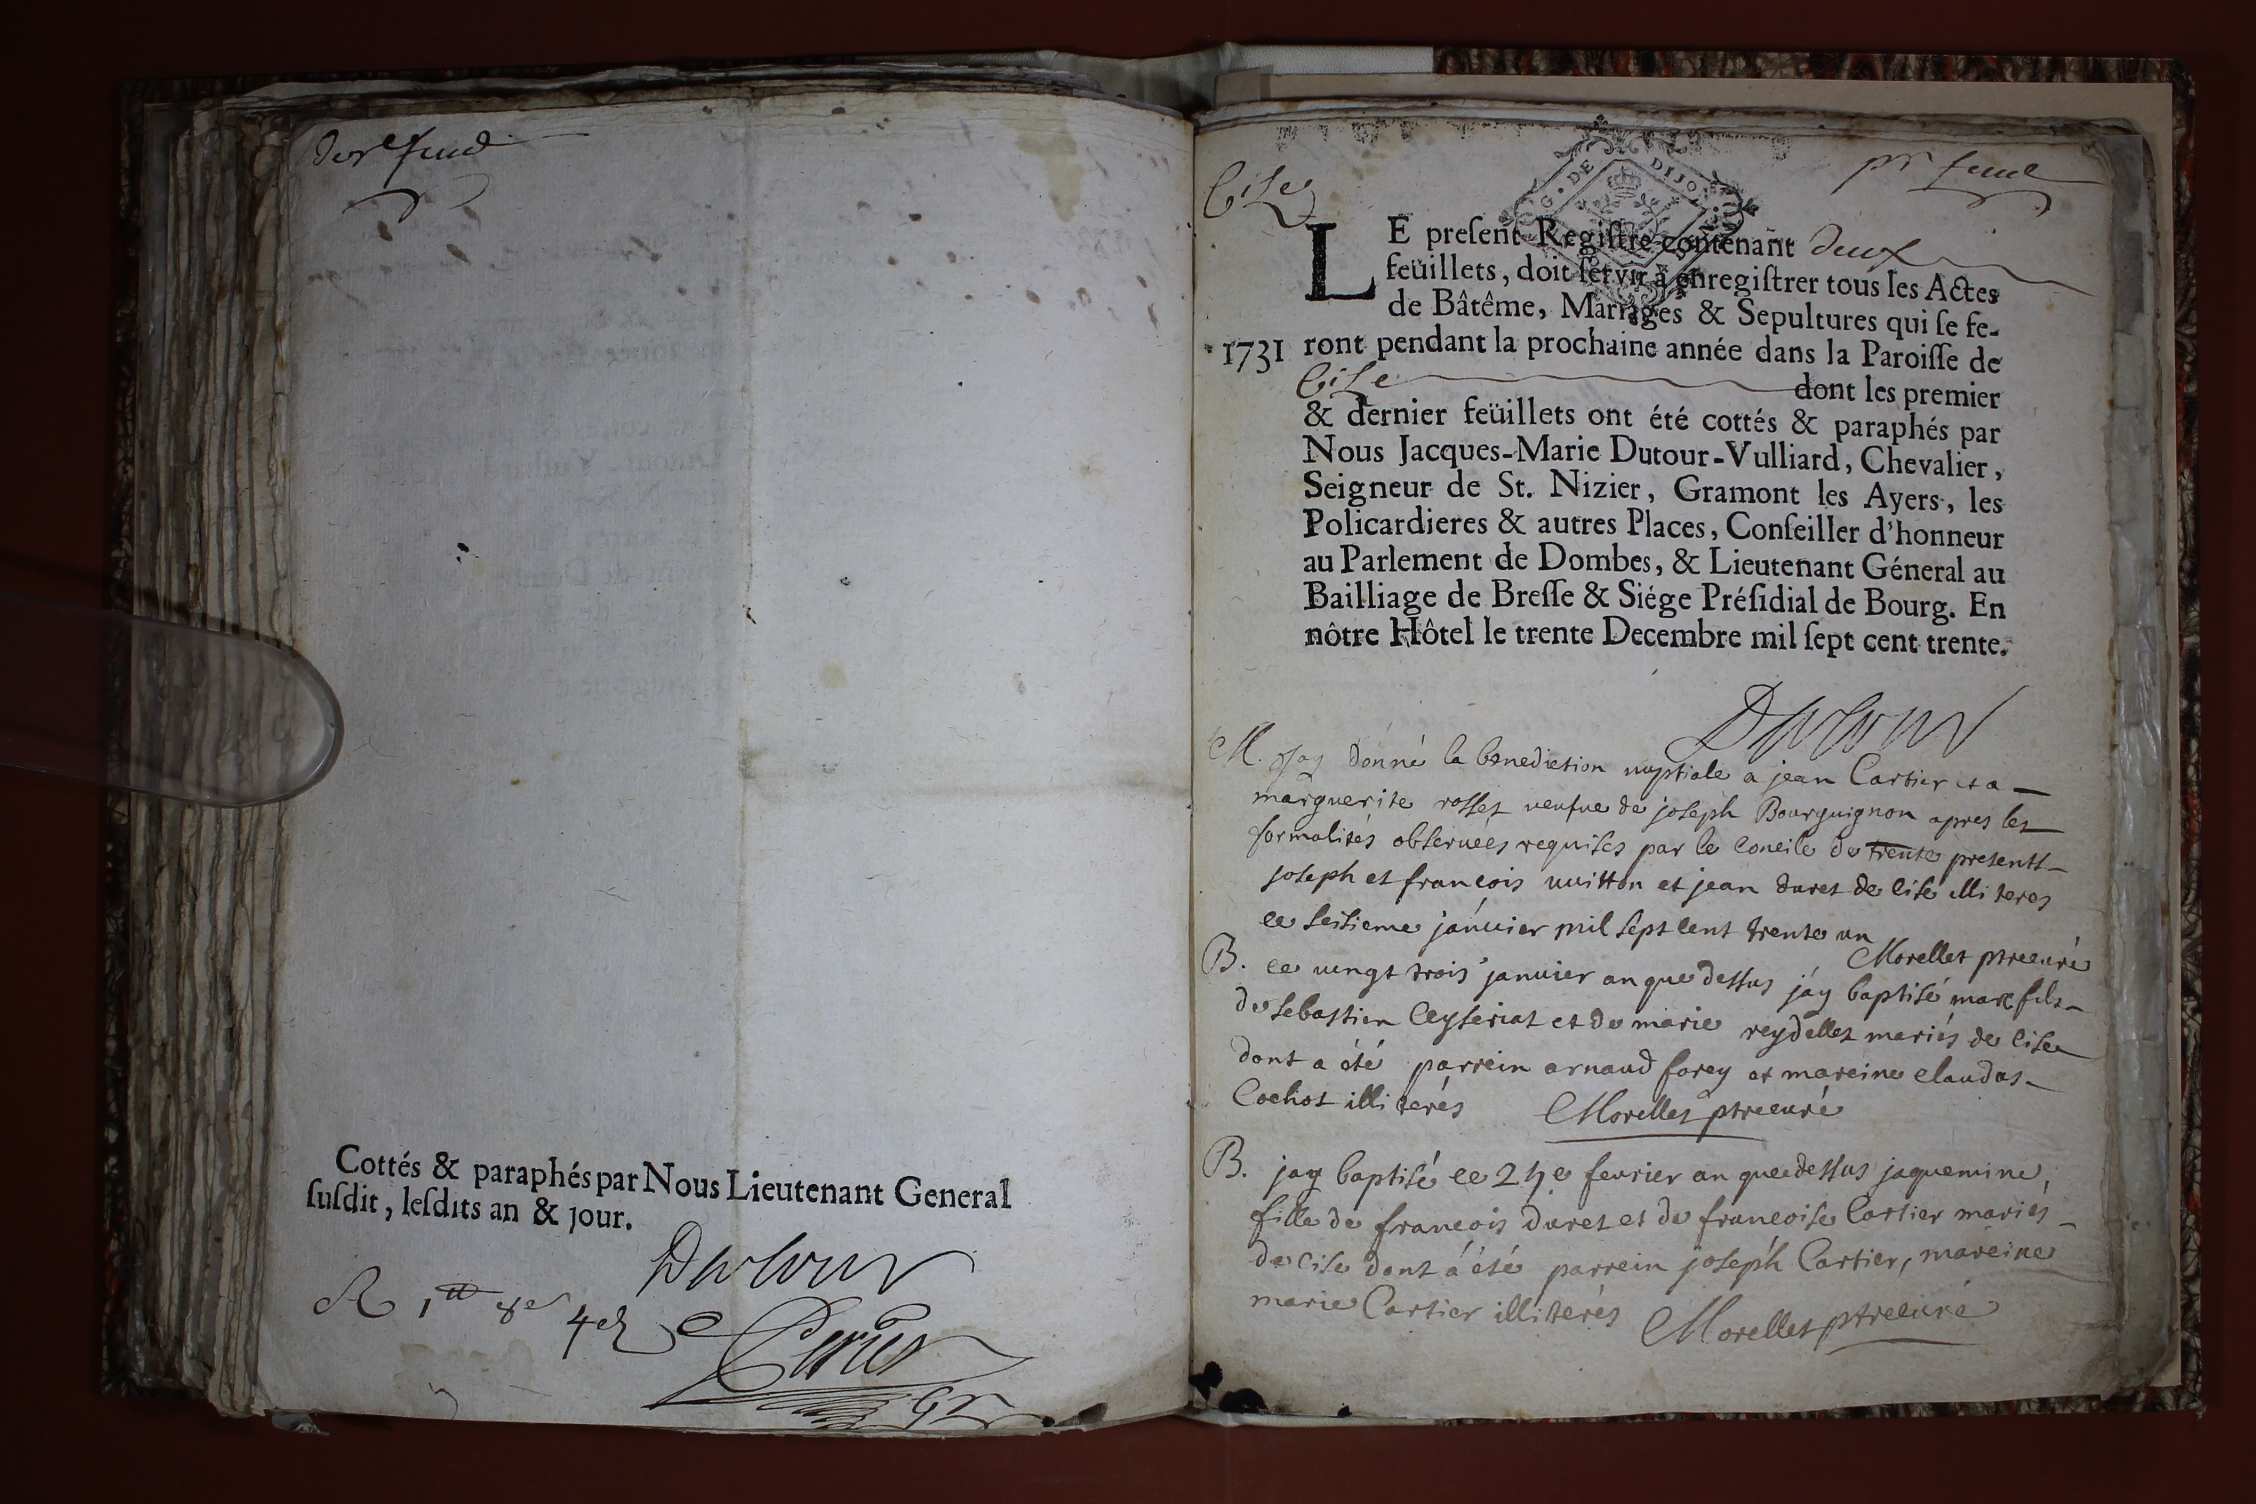 Cottés & paraphés par Nous Lieutenant General
ſuſdit, leſdits an & jour.
Dutour
G. DE DIJON
Cise
pr feuil
LE preſent Regiſtre contenant deux
feüillets, doit ſervir à enregiſtrer tous les Actes
de Bâtême, Mariages & Sepultures qui ſe fe-
1731 ront pendant la prochaine année dans la Paroiſſe de
Cise dont les premier
& dernier feüillets ont été cottés & paraphés par
Nous Jacques-Marie Dutour-Vulliard, Chevalier,
Seigneur de St. Nizier, Gramont les Ayers, les
Policardieres & autres Places, Conſeiller d'honneur
au Parlement de Dombes, & Lieutenant Géneral au
Bailliage de Breſſe & Siége Préſidial de Bourg. En
nôtre Hôtel le trente Decembre mil ſept cent trente.
Dutour
M. Jay donné la benediction nuptiale a jean Cartier et a
marguerite rosset veufue de joseph Bourguignon apres les
formalités obseruées requises par le Concile de trente presents
joseph et francois uuitton et jean duret de Cise illiteres
ce seisieme januier mil sept cent trente un
Morellet ptre curé
B. ce uingt trois januier an que dessus jáy baptisé marc fils
de sebastien Ceyseriat et de marie reydellet mariés de Cise
dont a été parrein arnaud forey et mareine claudas
Cochot illiterés Morellet ptre curé
B. jay baptisé ce 24e feurier an que dessus jaquemine,
fille de francois duret et de francoise Cartier mariés
de Cise dont á été parrein joseph Cartier, mareine
marie Cartier illiterés Morellet ptre curé